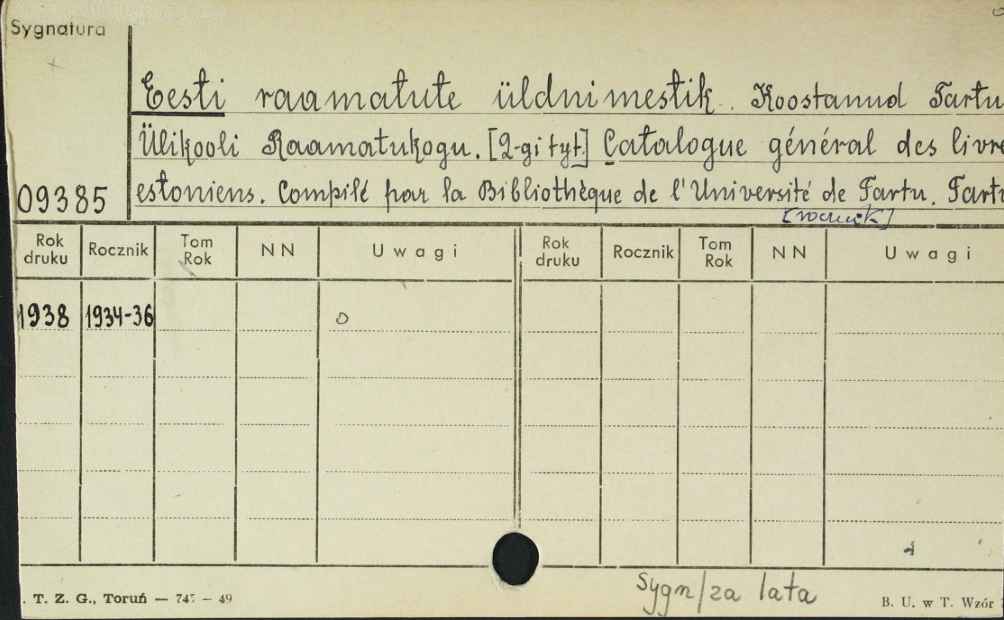 Sygnatura
Eesti raamatute üldnimestik. Koostanud Tartu
Ülikooli Raamatukogu. [2-gi tyt.] Catalogue général des livre
09385 estoniens. Compilé par la Bibliothèque de l'Université de Tartu. Tartu
[rocznik]
Rok druku Rocznik Tom Rok NN Uwagi Rok druku Rocznik Tom Rok NN Uwagi
1938 1934-36 o
Sygn/za lata
. T. Z. G., Toruń — 745 — 49 B. U. w T. Wzór